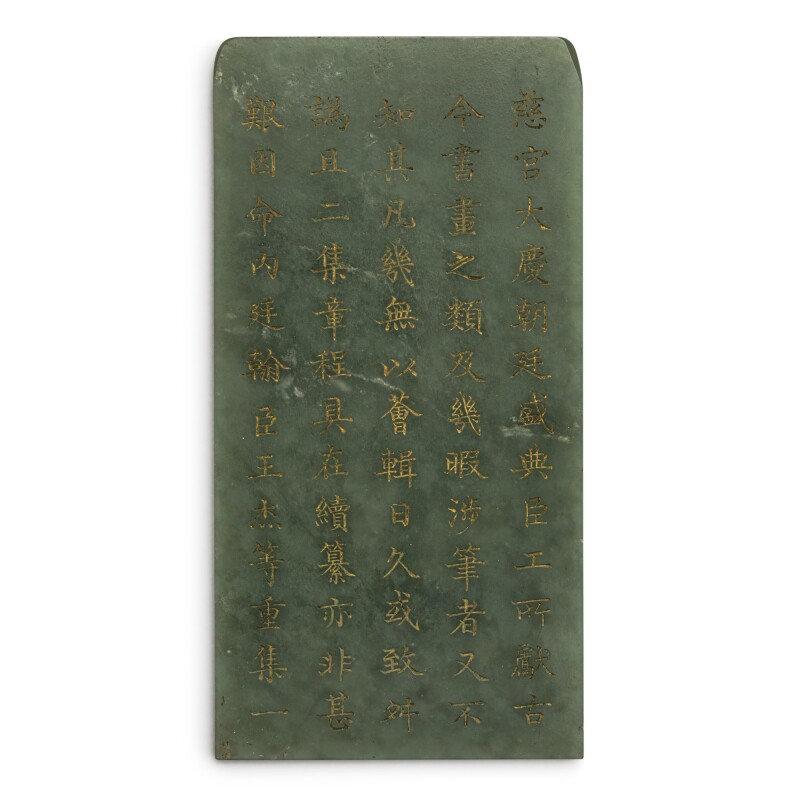 慈宮大慶朝廷盛典臣工所獻古
今書畫之類及幾暇涉筆者又不
知其凡幾無以薈輯日久或致舛
譌且二集章程具在續纂亦非甚
艱因命內廷翰臣王杰等重集一